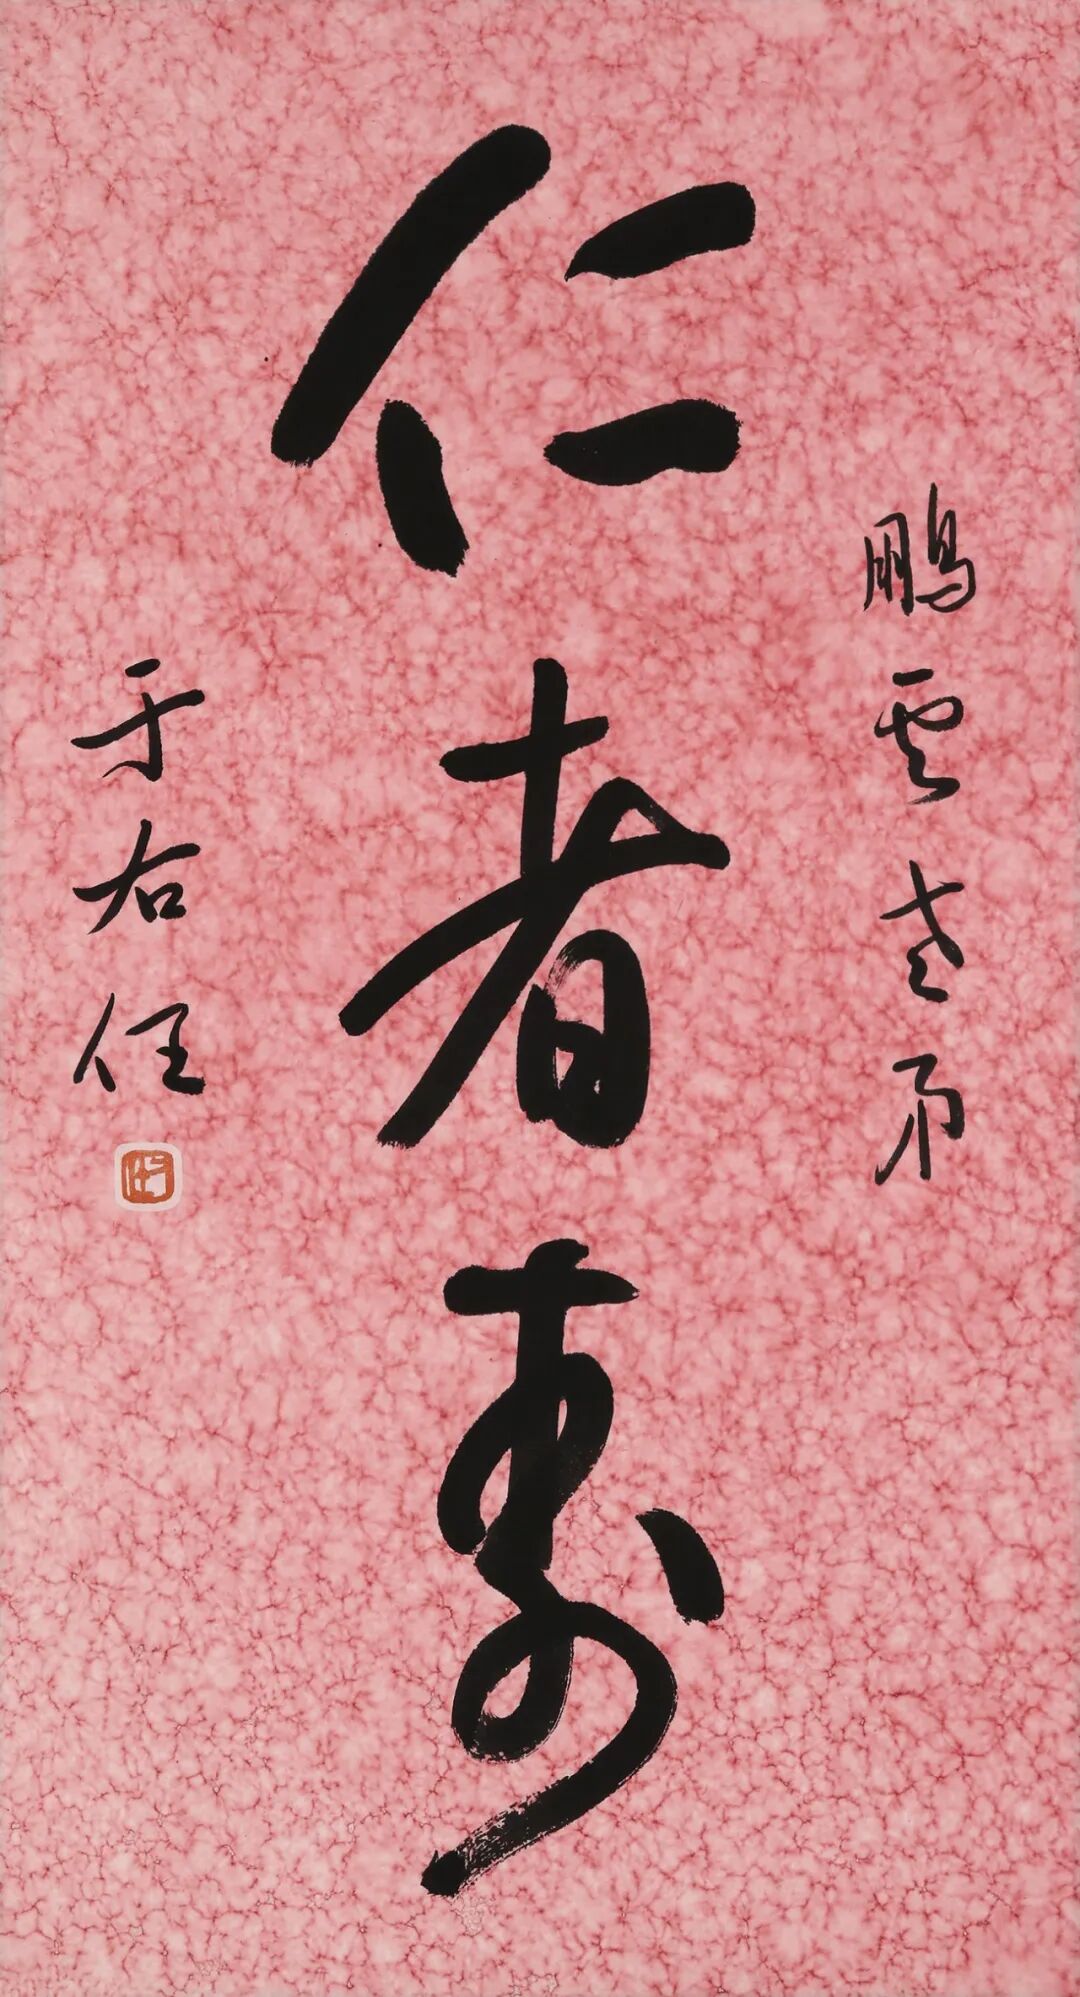 鵬雲老弟
仁者壽
于右任